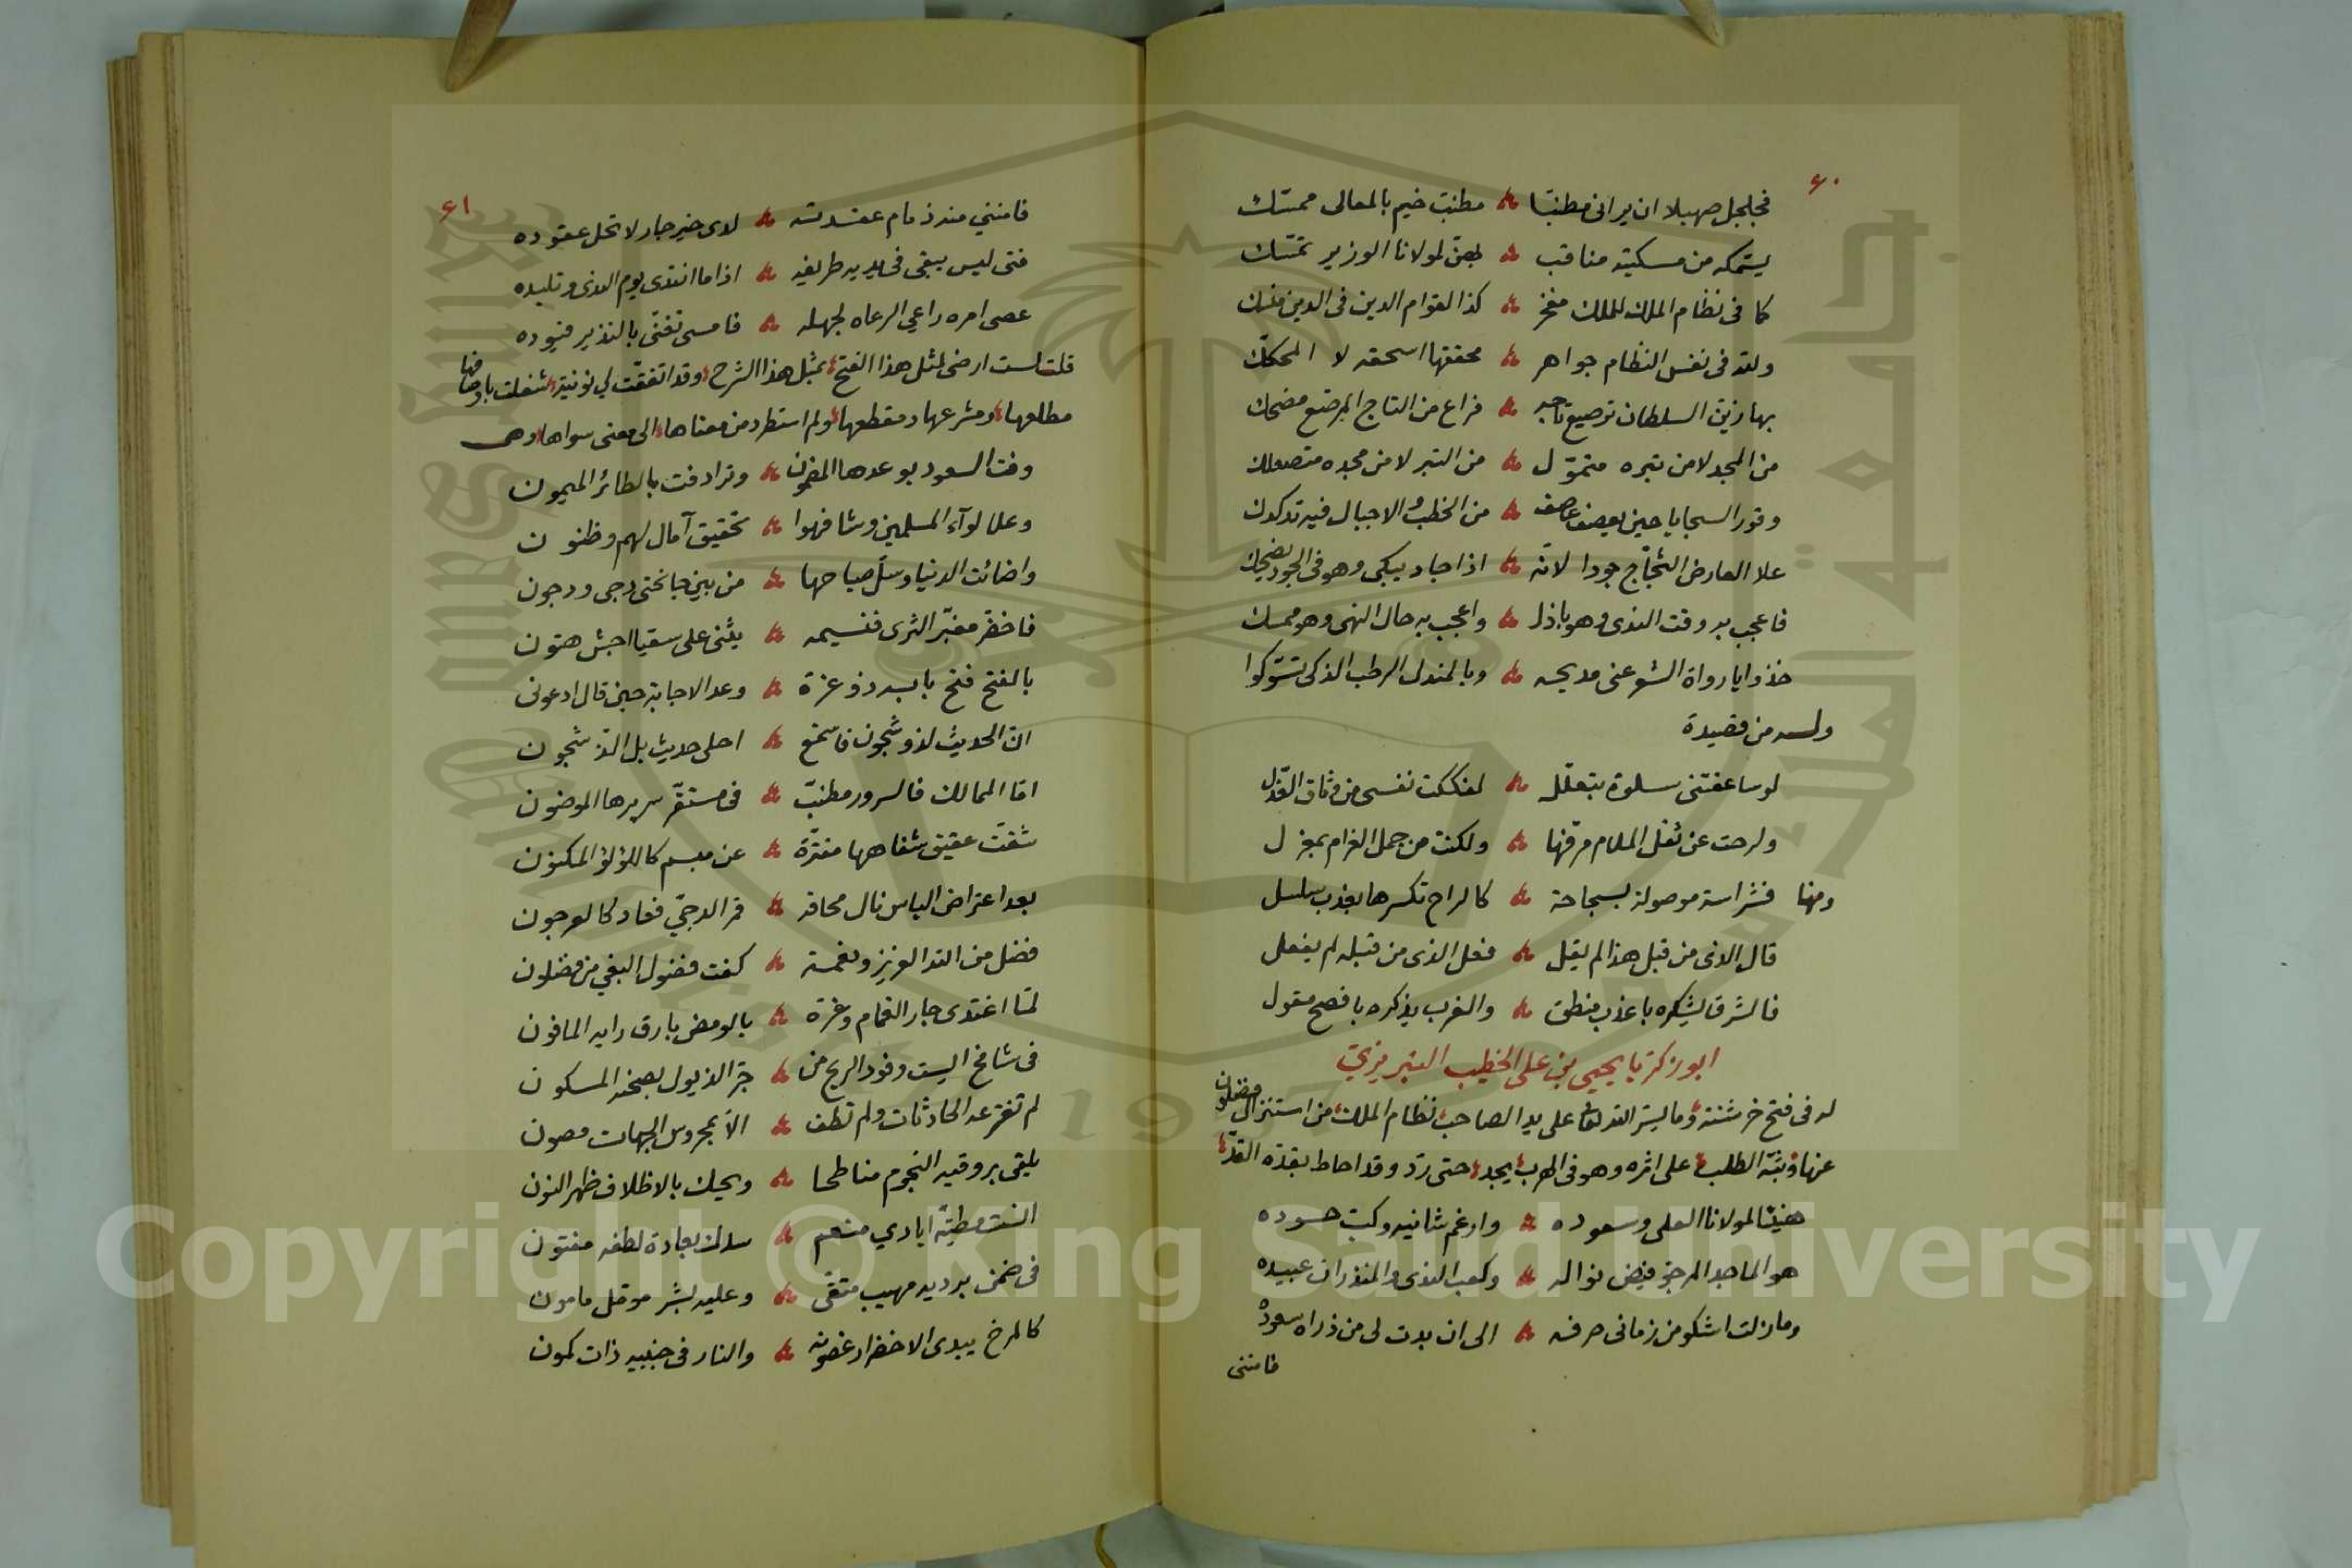 ٦٠
فجلجل صهيلا ان يرانى مطنبا ۞ مطنب خيم بالمعالى ممسك
مناقب ۞ بهن لمولانا الوزير تمسك
كما فى نظام الملك للملك مفخر ۞ كذا لقوام الدين فى الدين منسك
ولله فى نفس النظام جواهر ۞ محققها اسحقه لا المحكك
بها زين السلطان ترصيع تاجه ۞ فراع من التاج المرصع مضحك
من المجد لا من تبره متمول ۞ من التبر لا من مجده متصعلك
وقور السجايا حين يعصف عاصف ۞ من الخطب والاجبال فيه تدكدك
علا العارض الثجاج جودا لانه ۞ اذا جاد يبكى وهو فى الجود يضحك
فاعجب به وقت الندى وهو باذل ۞ واعجب به حال النهى وهو ممسك
خذوا يا رواة الشعر عنى مديحه ۞ وبالمندل الرطب الذكى تسوكوا
وله من قصيدة
لو ساعفتنى سلوة بتعلل ۞ لفككت نفسى من وثاق العذل
ولرحت عن ثقل الملام مرفها ۞ ولكنت من حمل الغرام بمعزل
ومنها فشراسة موصولة بسجاحة ۞ كالراح تكسرها بعذب سلسل
قال الذى من قبل هذا لم يقل ۞ فعل الذى من قبله لم يفعل
فالشرق يشكره باعذب منطق ۞ والغرب يذكره بافصح مقول
ابو زكريا يحيى بن على الخطيب التبريزى
له فى فتح خرشنة وما يسر الله تعالى على يد الصاحب نظام الملك من استنزال فضلون
عنها وبثه الطلب على اثره وهو فى الهرب يجد حتى رد وقد احاط بقذه القد
هنيئا لمولانا العلى وسعوده ۞ وارغم شانيه وكبت حسوده
هو الماجد المرجو فيض نواله ۞ وكعب الندى والمنذران عبيده
وما زلت اشكو من زمانى صرفه ۞ الى ان بدت لى من ذراه سعوده
فامننى
٦١
فامننى منه ذمام عقدته ۞ لدى خير جار لا تحل عقوده
فتى ليس يبقى فى يديه طريفه ۞ اذا ما انتدى يوم الندى وتليده
عصى امره راعى الرعاه لجهله ۞ فامسى تغنى بالنذير قيوده
قلت لست ارضى لمثل هذا الفتح بمثل هذا الشرح وقد اتفقت لى نونية شغلت باوصافها
مطلعها ومشرعها ومقطعها ولم استطرد من معناها الى معنى سواها وهى
وفت السعود بوعدها المضمون ۞ وترادفت بالطائر الميمون
وعلا لوآء المسلمين وشافهوا ۞ تحقيق آمال لهم وظنون
واضائت الدنيا وسل صباحها ۞ من بين جانحتى دجى ودجون
فاخضر مغبر الثرى فنسيمه ۞ يثنى على سقيا اجش هتون
بالفتح فتح بابه ذو عزة ۞ وعد الاجابة حين قال ادعونى
ان الحديث لذو شجون فاستمع ۞ احلى حديث بل الذ شجون
اما الممالك فالسرور مطنب ۞ فى مستقر سريرها الموضون
شقت عقيق شفاهها مفترة ۞ عن مبسم كاللؤلؤ المكنون
بعد اعتراض الياس نال محاقه ۞ قمر الدجى فعاد كالعرجون
فضل من الله العزيز ونعمة ۞ كفت فضول البغى من فضلون
لما اغتدى جار الغمام وغره ۞ بالومض بارق رايه المافون
فى شامخ اليست وفود الريح من ۞ جر الذيول بصحنه المسكون
لم تفترعه الحادثات ولم تطف ۞ الا بمحروس الجهات مصون
يلقى بروقيه النجوم مناطحا ۞ ويحك بالاظلاف ظهر النون
انست مطية ايادي منعم ۞ سدك بعادة لطفه مفتون
فى ضمن برديه مهيب متقى ۞ وعليه بشر مؤمل مامون
كالمرخ يبدى الاخضرار غصونه ۞ والنار فى جنبيه ذات كمون
جامعة الملك سعود
King Saud University
1957
Copyright © King Saud University